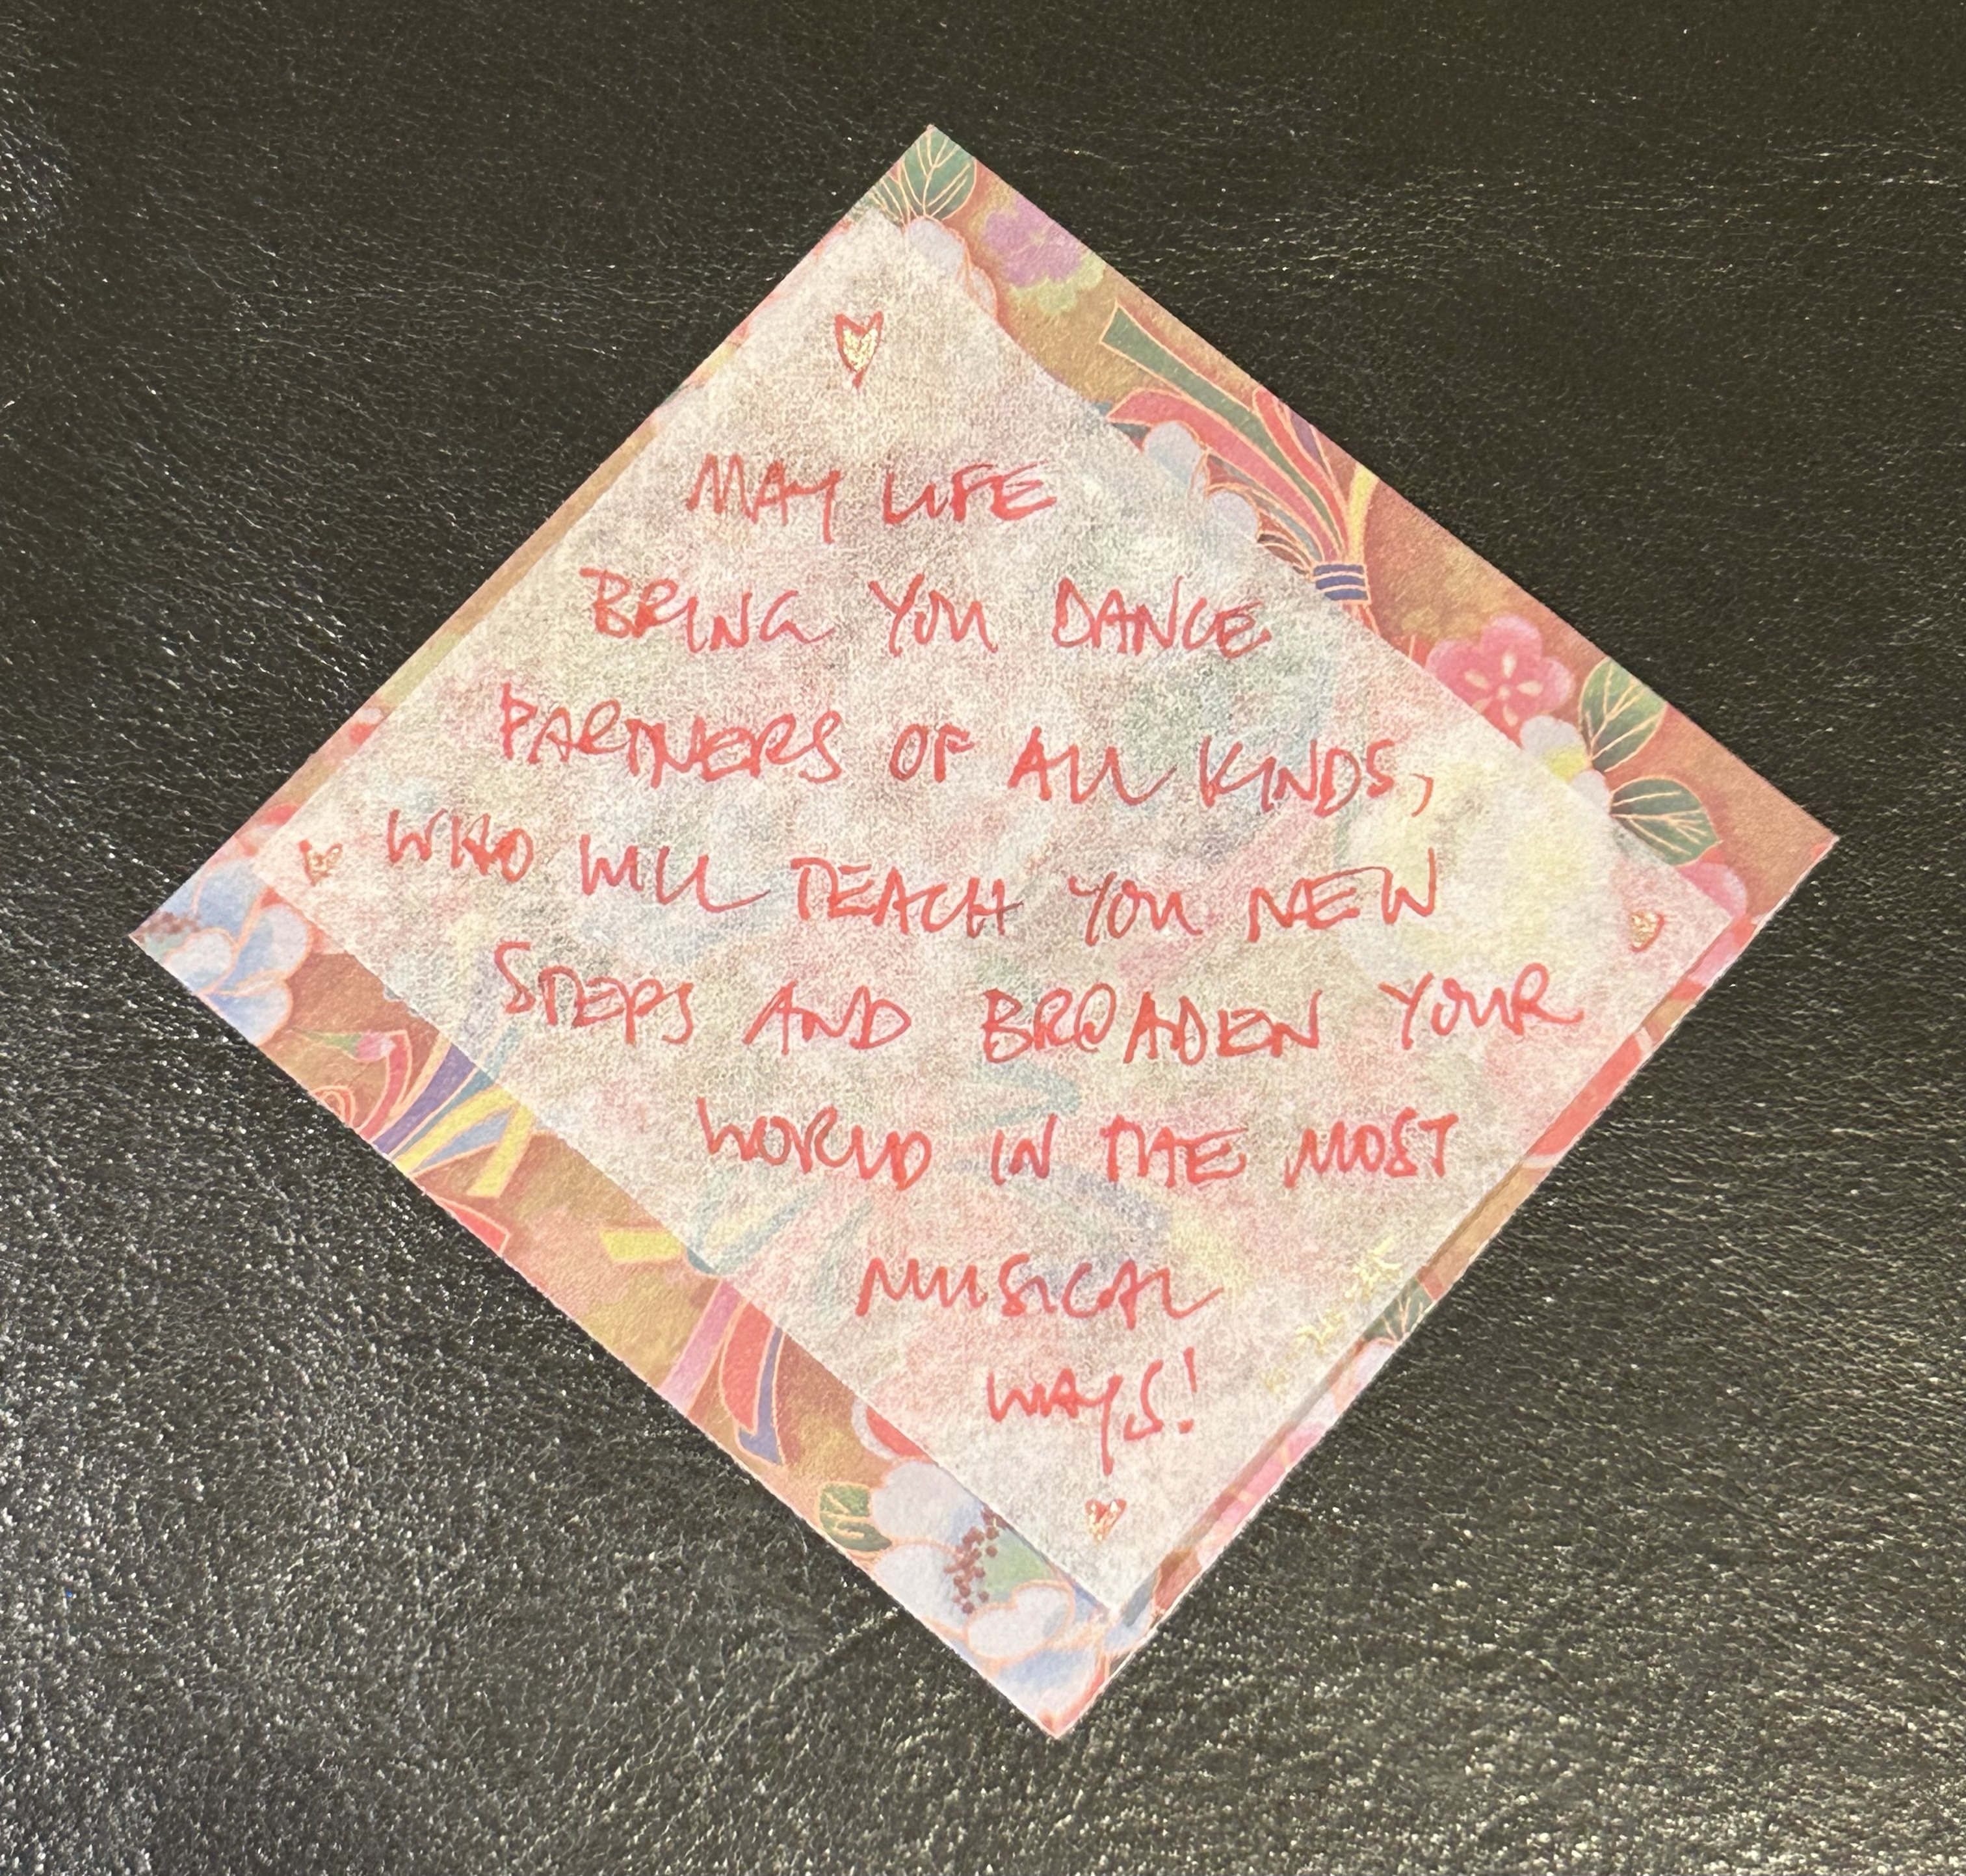 MAY LIFE
BRING YOU DANCE
PARTNERS OF ALL KINDS,
WHO WILL TEACH YOU NEW
STEPS AND BROADEN YOUR
WORLD IN THE MOST
MUSICAL
WAYS!